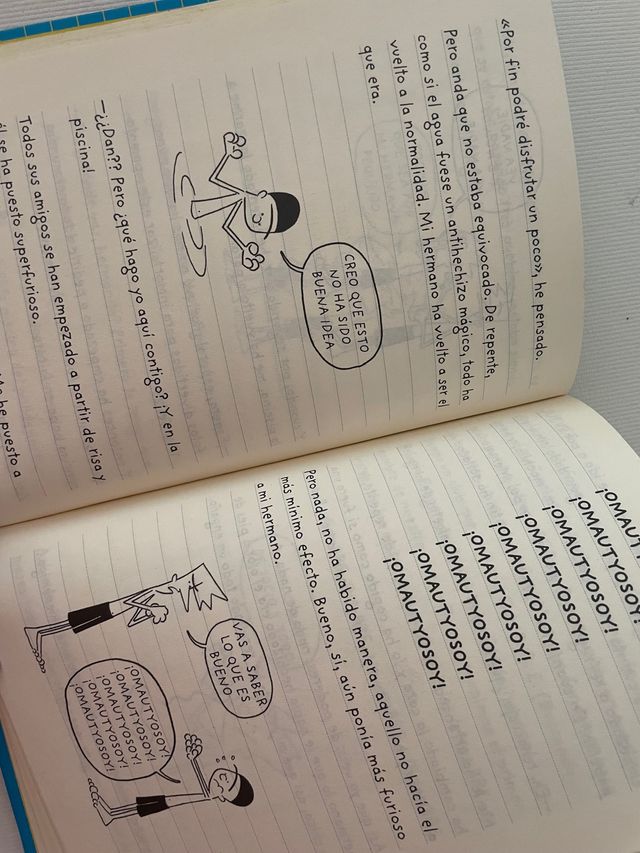 «Por fin podré disfrutar un poco», he pensado.
Pero anda que no estaba equivocado. De repente,
como si el agua fuese un antihechizo mágico, todo ha
vuelto a la normalidad. Mi hermano ha vuelto a ser el
que era.
CREO QUE ESTO
NO HA SIDO
BUENA IDEA
—¿¿Dan?? Pero ¿qué hago yo aquí contigo? ¡Y en la
piscina!
Todos sus amigos se han empezado a partir de risa y
él se ha puesto superfurioso.
he puesto a
¡OMAUTYOSOY!
¡OMAUTYOSOY!
¡OMAUTYOSOY!
¡OMAUTYOSOY!
¡OMAUTYOSOY!
¡OMAUTYOSOY!
¡OMAUTYOSOY!
Pero nada, no ha habido manera, aquello no hacía el
más mínimo efecto. Bueno, sí, aún ponía más furioso
a mi hermano.
VAS A SABER
LO QUE ES
BUENO
¡OMAUTYOSOY!
¡OMAUTYOSOY!
¡OMAUTYOSOY!
¡OMAUTYOSOY!
¡OMAUTYOSOY!